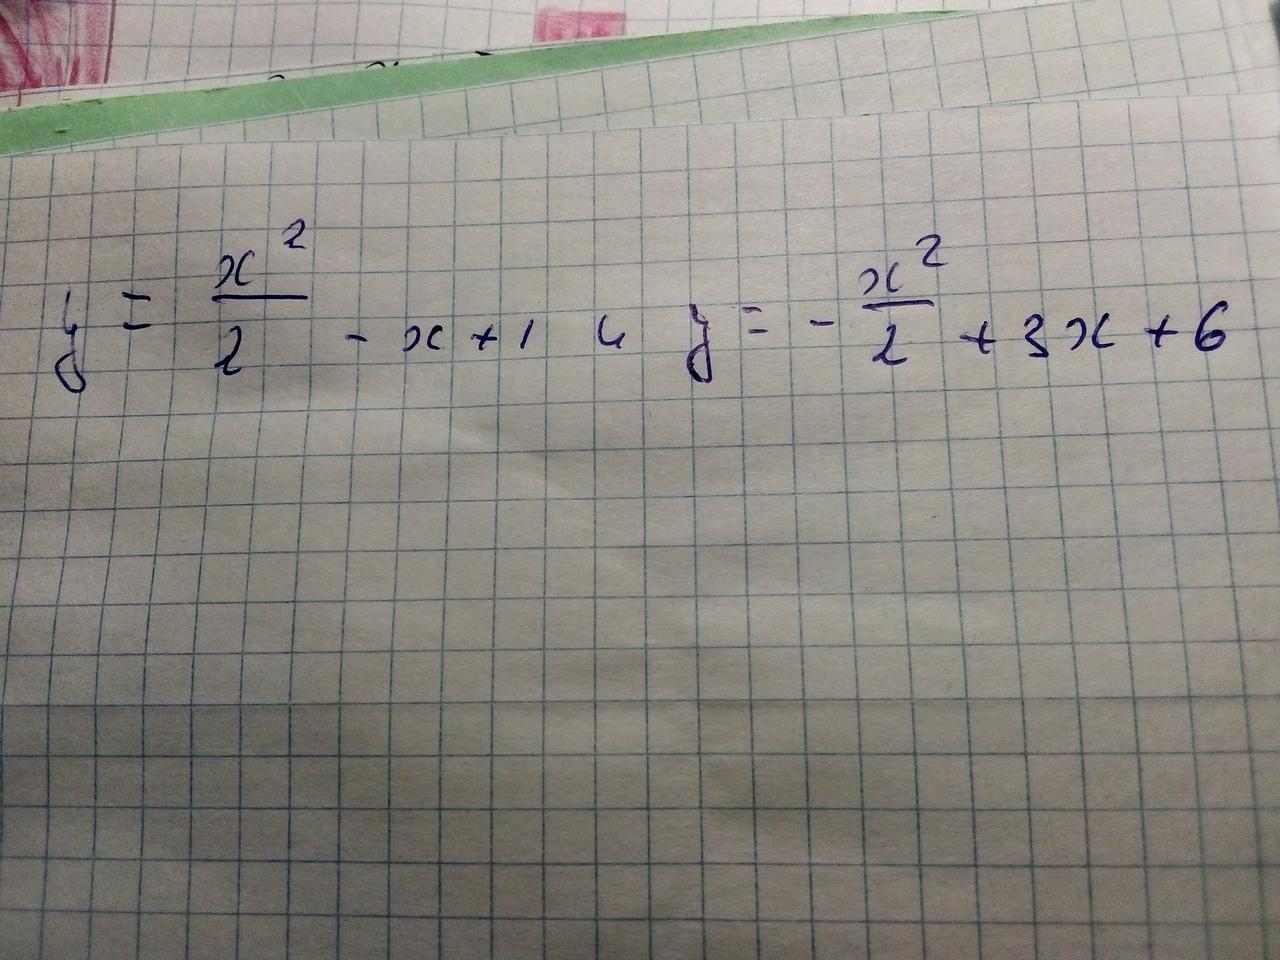 y = x²/2 - x + 1 и y = - x²/2 + 3x + 6